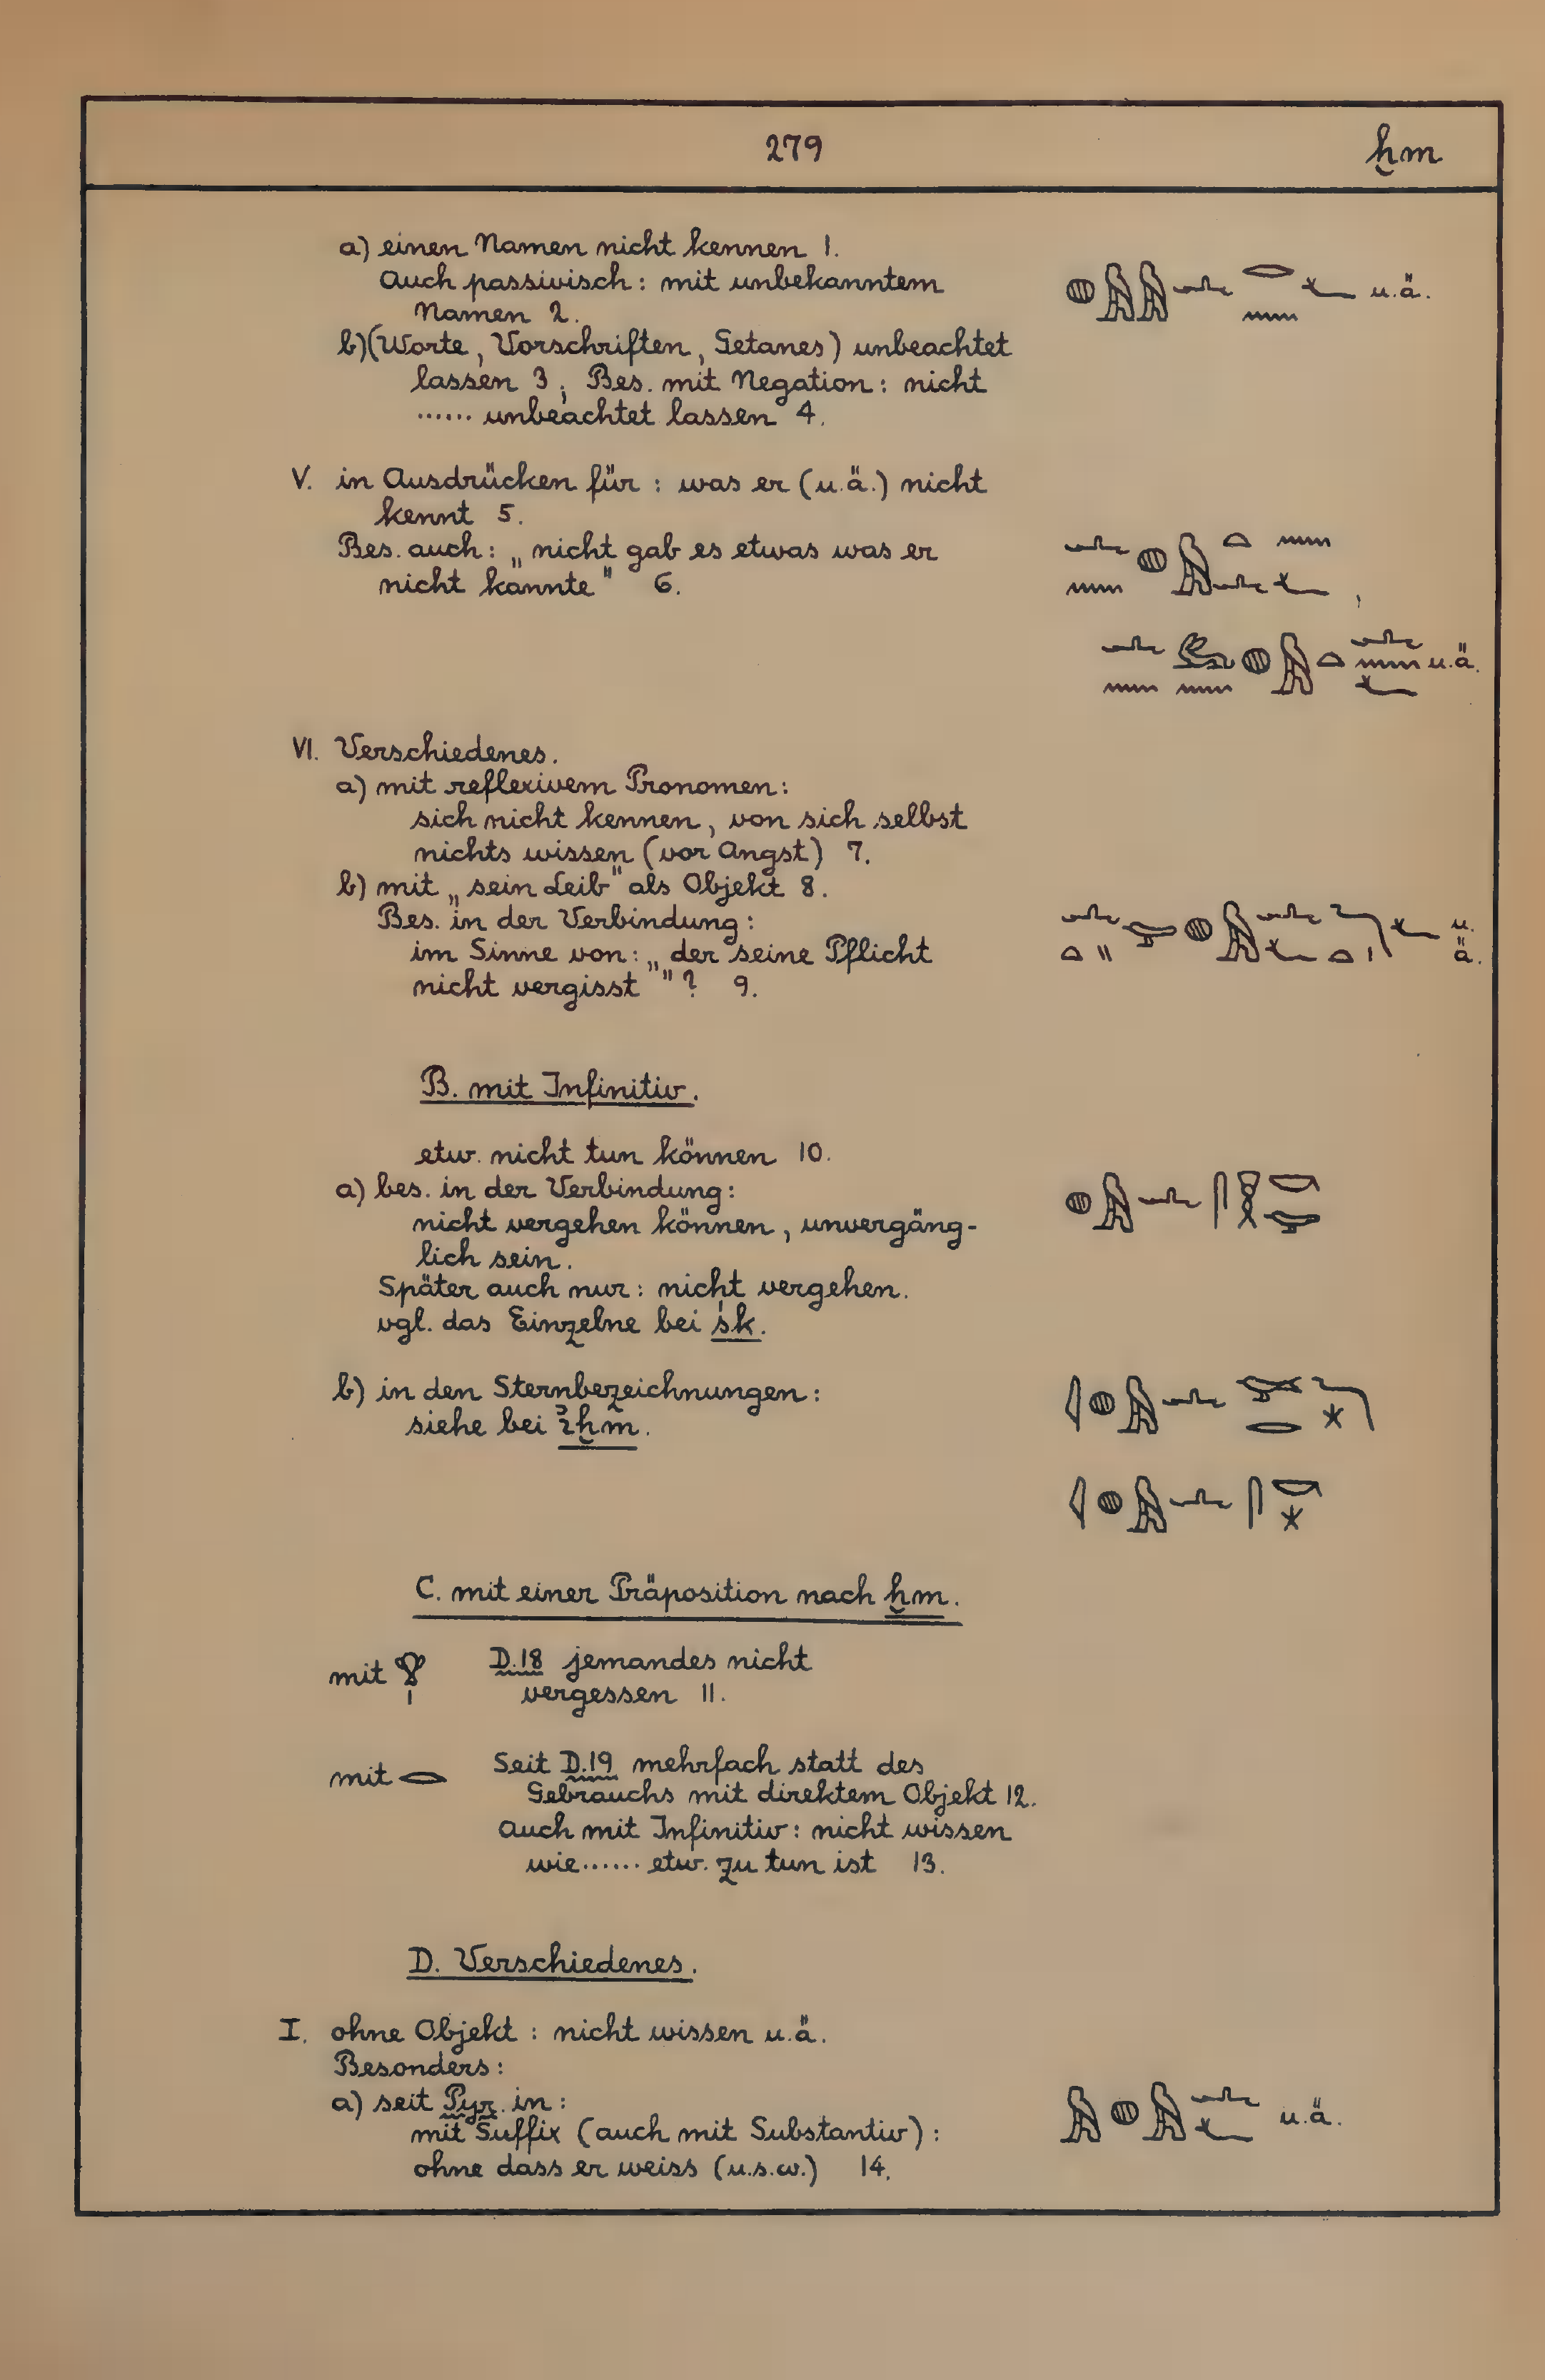 279 ḫm
a) einen Namen nicht kennen 1.
Auch passivisch: mit unbekanntem
Namen 2.
u.ä.
b) (Worte, Vorschriften, Getanes) unbeachtet
lassen 3; Bes. mit Negation: nicht
...... unbeachtet lassen 4.
V. in Ausdrücken für: was er (u.ä.) nicht
kennt 5.
Bes. auch: „nicht gab es etwas was er
nicht kannte" 6.
,
u.ä.
VI. Verschiedenes.
a) mit reflexivem Pronomen:
sich nicht kennen, von sich selbst
nichts wissen (vor Angst) 7.
b) mit „sein Leib" als Objekt 8.
Bes. in der Verbindung:
u.ä.
im Sinne von: „der seine Pflicht
nicht vergisst"? 9.
B. mit Infinitiv.
etw. nicht tun können 10.
a) bes. in der Verbindung:
nicht vergehen können, unvergäng-
lich sein.
Später auch nur: nicht vergehen.
vgl. das Einzelne bei śk.
b) in den Sternbezeichnungen:
siehe bei ꞽḫm.
C. mit einer Präposition nach ḫm.
mit D.18 jemandes nicht
vergessen 11.
mit Seit D.19 mehrfach statt des
Gebrauchs mit direktem Objekt 12.
Auch mit Infinitiv: nicht wissen
wie...... etw. zu tun ist 13.
D. Verschiedenes.
I. ohne Objekt: nicht wissen u.ä.
Besonders:
a) seit Pyr. in:
u.ä.
mit Suffix (auch mit Substantiv):
ohne dass er weiss (u.s.w.) 14.